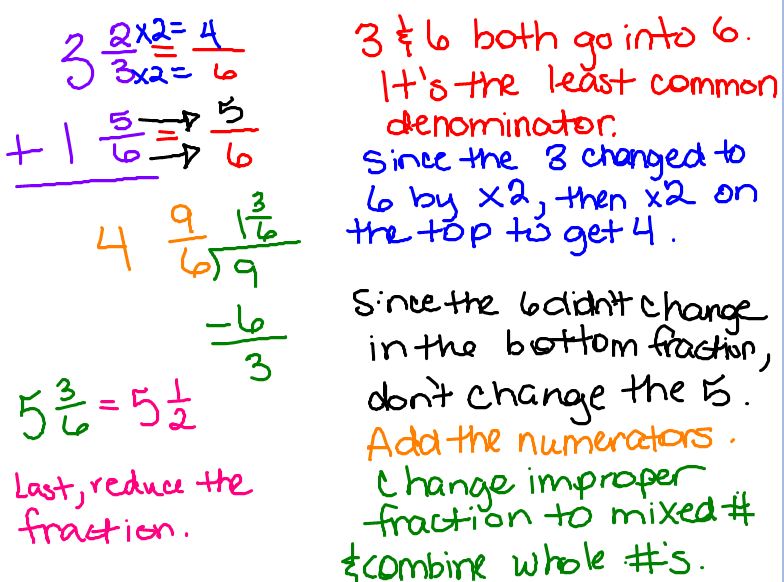 3 2/3 x2= = 4/6
x2=
+ 1 5/6 = 5/6
4 9/6 1 3/6
6)9
-6
3
5 3/6 = 5 1/2
Last, reduce the
fraction.
3 & 6 both go into 6.
It's the least common
denominator.
Since the 3 changed to
6 by x2, then x2 on
the top to get 4.
Since the 6 didn't change
in the bottom fraction,
don't change the 5.
Add the numerators.
Change improper
fraction to mixed #
& combine whole #'s.